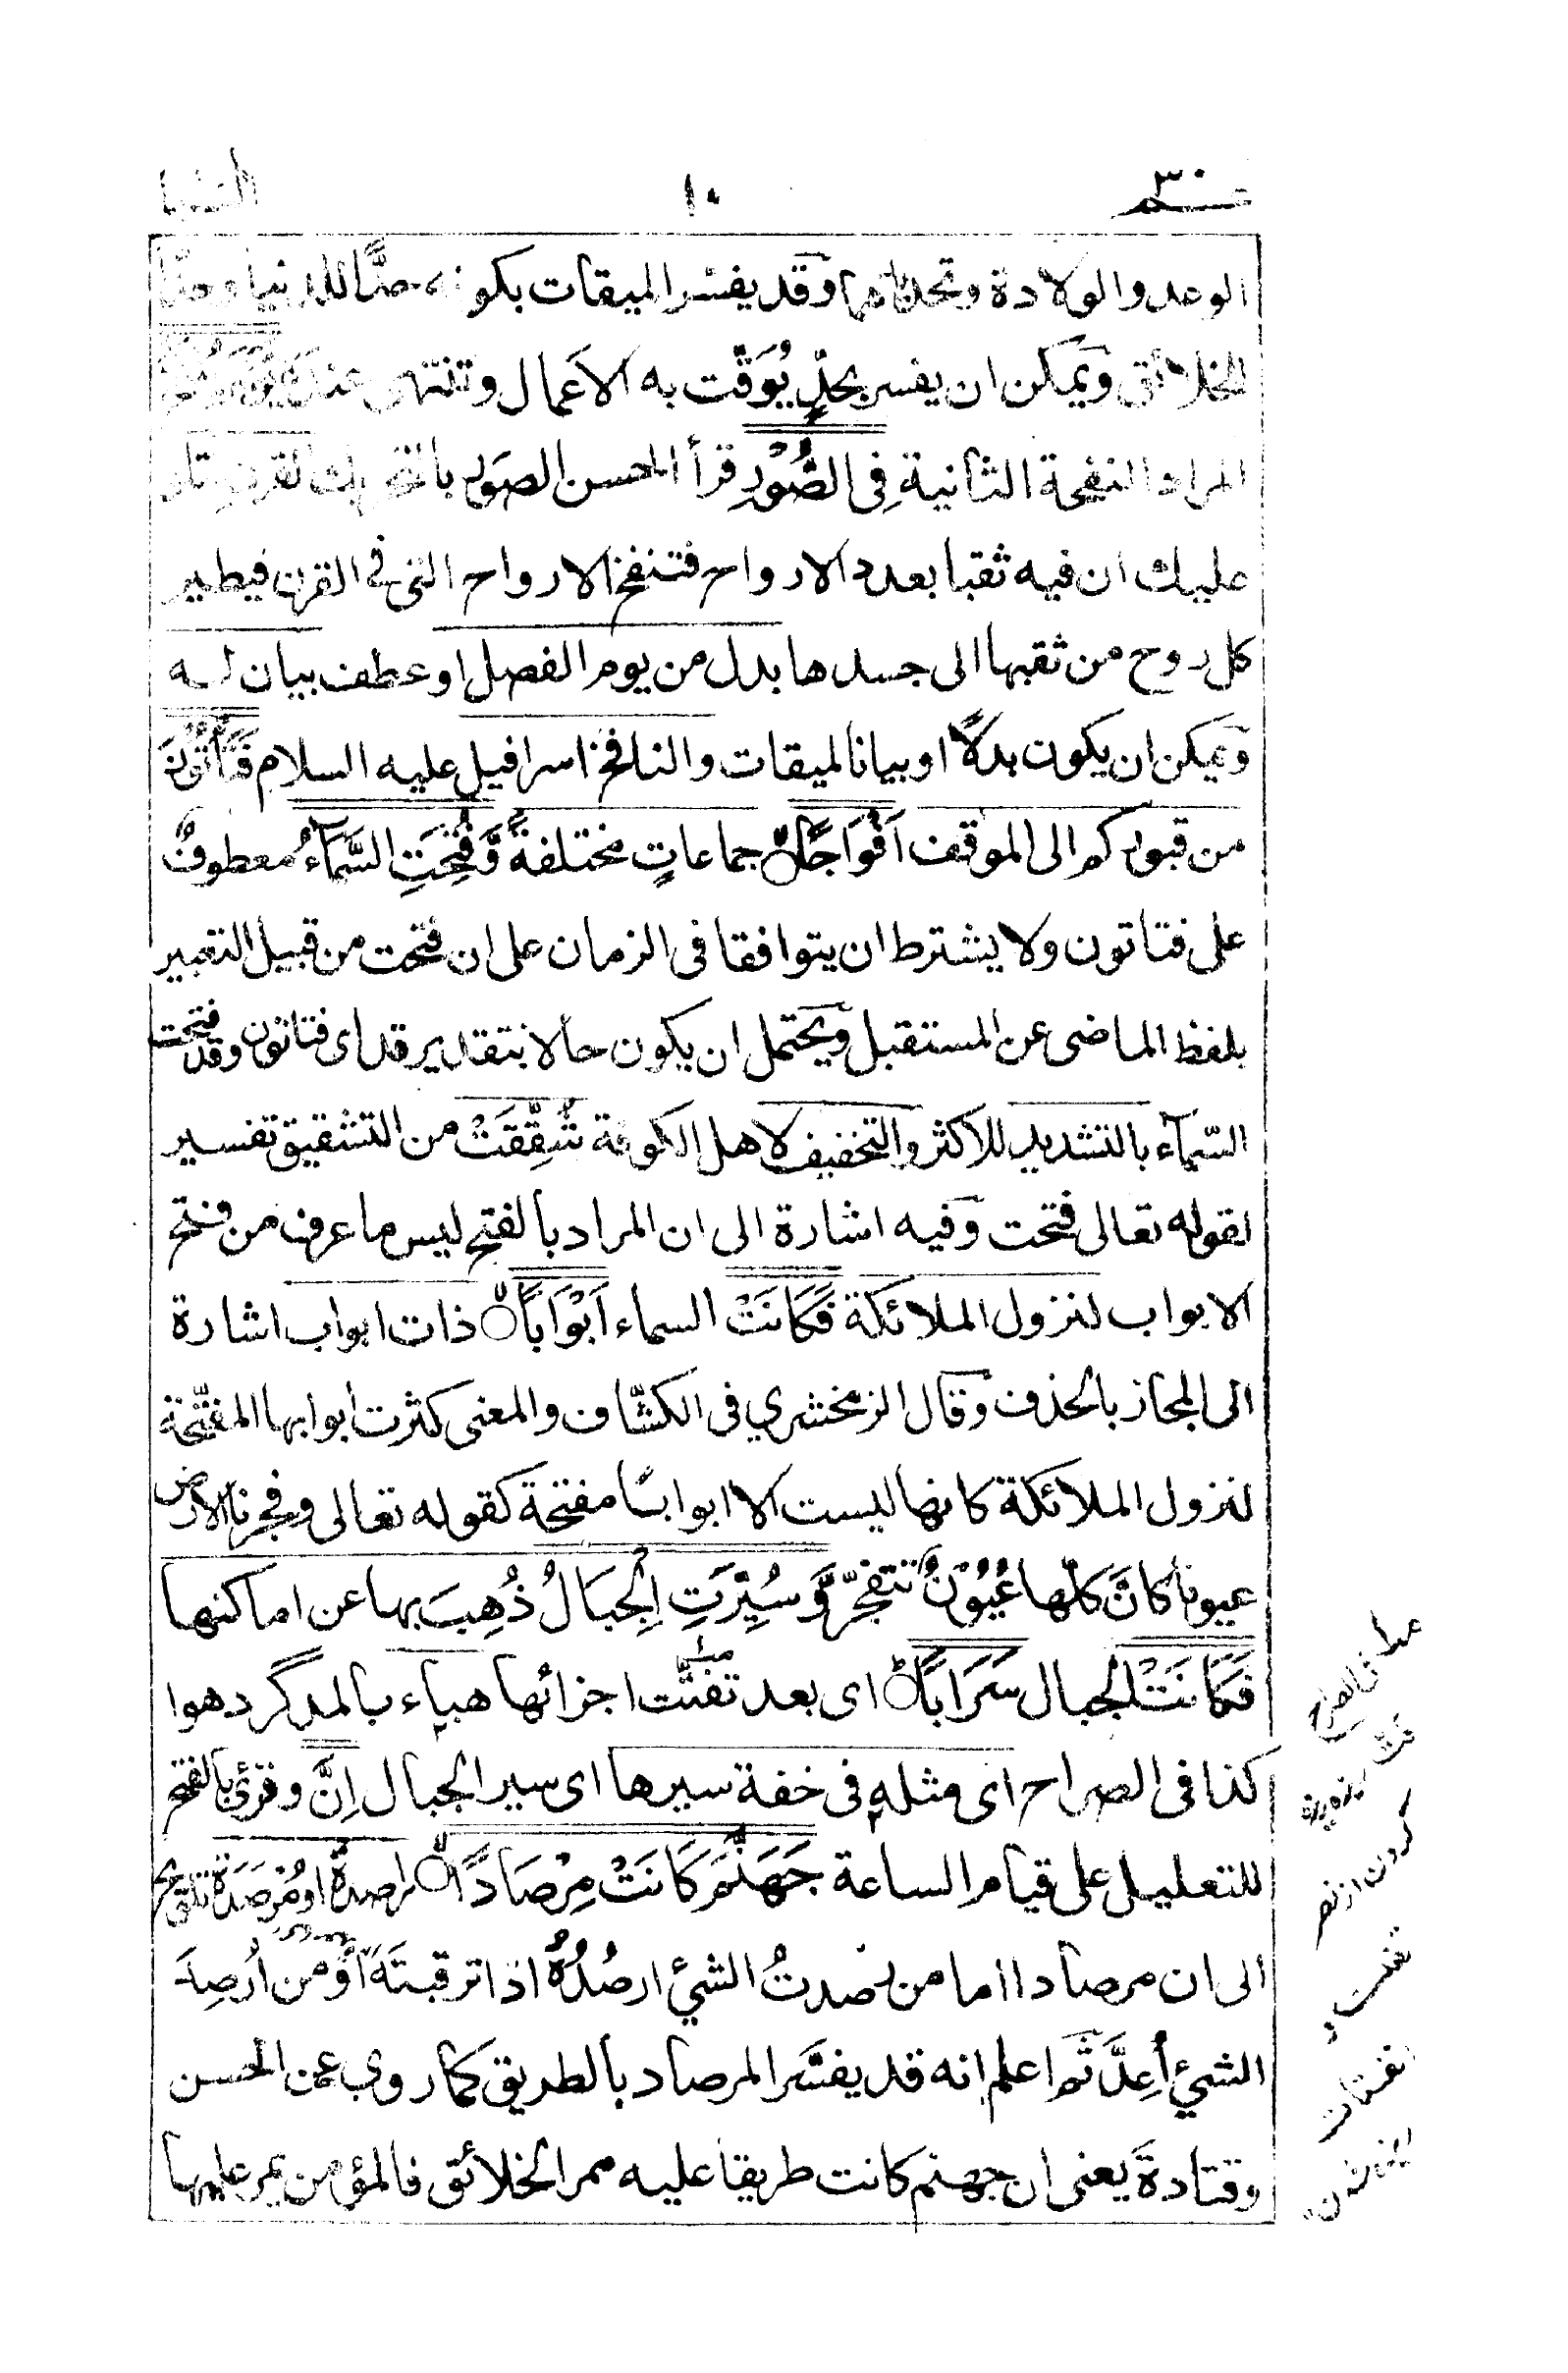 عم ٣٠
١٠
النبا
الوعد والولادة وتحققهما وقد يفسر الميقات بكونه حدًّا للدنيا وحدًّا
للخلائق ويمكن ان يفسر بحدٍّ يُوَقَّت به الاعمال وتنتهى عنده يَوْمَ يُنْفَخُ
المراد النفخة الثانية فِى الصُّوْرِ قرأ الحسن الصور بالفتح
عليك ان فيه ثقبا بعدد الارواح فتنفخ الارواح التى فى القرن فيطير
كل روح من ثقبها الى جسدها بدل من يوم الفصل او عطف بيان له
ويمكن ان يكون بدلًا او بيانا لميقات والنافخ اسرافيل عليه السلام فَتَأْتُوْنَ
من قبوركم الى الموقف اَفْوَاجًا جماعاتٍ مختلفةً وَّفُتِحَتِ السَّمَآءُ معطوفٌ
على فتاتون ولا يشترط ان يتوافقا فى الزمان على ان فتحت من قبيل التعبير
بلفظ الماضى عن المستقبل ويحتمل ان يكون حالا بتقدير قد اى فتاتون وقد فتحت
السّمآء بالتشديد للاكثر والتخفيف لاهل الكوفة شُقِّقَتْ من التشقيق تفسير
لقوله تعالى فتحت وفيه اشارة الى ان المراد بالفتح ليس ما عرف من فتح
الابواب لنزول الملائكة فَكَانَتْ السماء اَبْوَابًا ذات ابواب اشارة
الى المجاز بالحذف وقال الزمخشري فى الكشّاف والمعنى كثرت ابوابها المفتّحة
لنزول الملائكة كانها ليست الا ابوابًا مفتحة كقوله تعالى وفجرنا الارض
عيونا كانَّ كلّها عُيُوْنٌ تتفجّر وَّسُيِّرَتِ الْجِبَالُ ذُهِبَ بها عن اماكنها
فَكَانَتْ الجبال سَرَابًا اى بعد تفتّت اجزائها هباء بالمد گرد هوا
كذا فى الصراح اى مثلهٖ فى خفة سيرها اى سير الجبال اِنَّ وقرئ بالفتح
للتعليل على قيام الساعة جَهَنَّمَ كَانَتْ مِرْصَادًا راصدةً او مُرْصَدَةً
الى ان مرصادا اما من رصدتُ الشئ ارصُدُهٗ اذا ترقبتَه اَوْ من اُرصِدَ
الشئ اُعِدَّ ثم اعلم انه قد يفسّر المرصاد بالطريق كما روى عن الحسن
وقتادة يعنى ان جهنم كانت طريقا عليه ممر الخلائق فالمؤمن يمر عليها